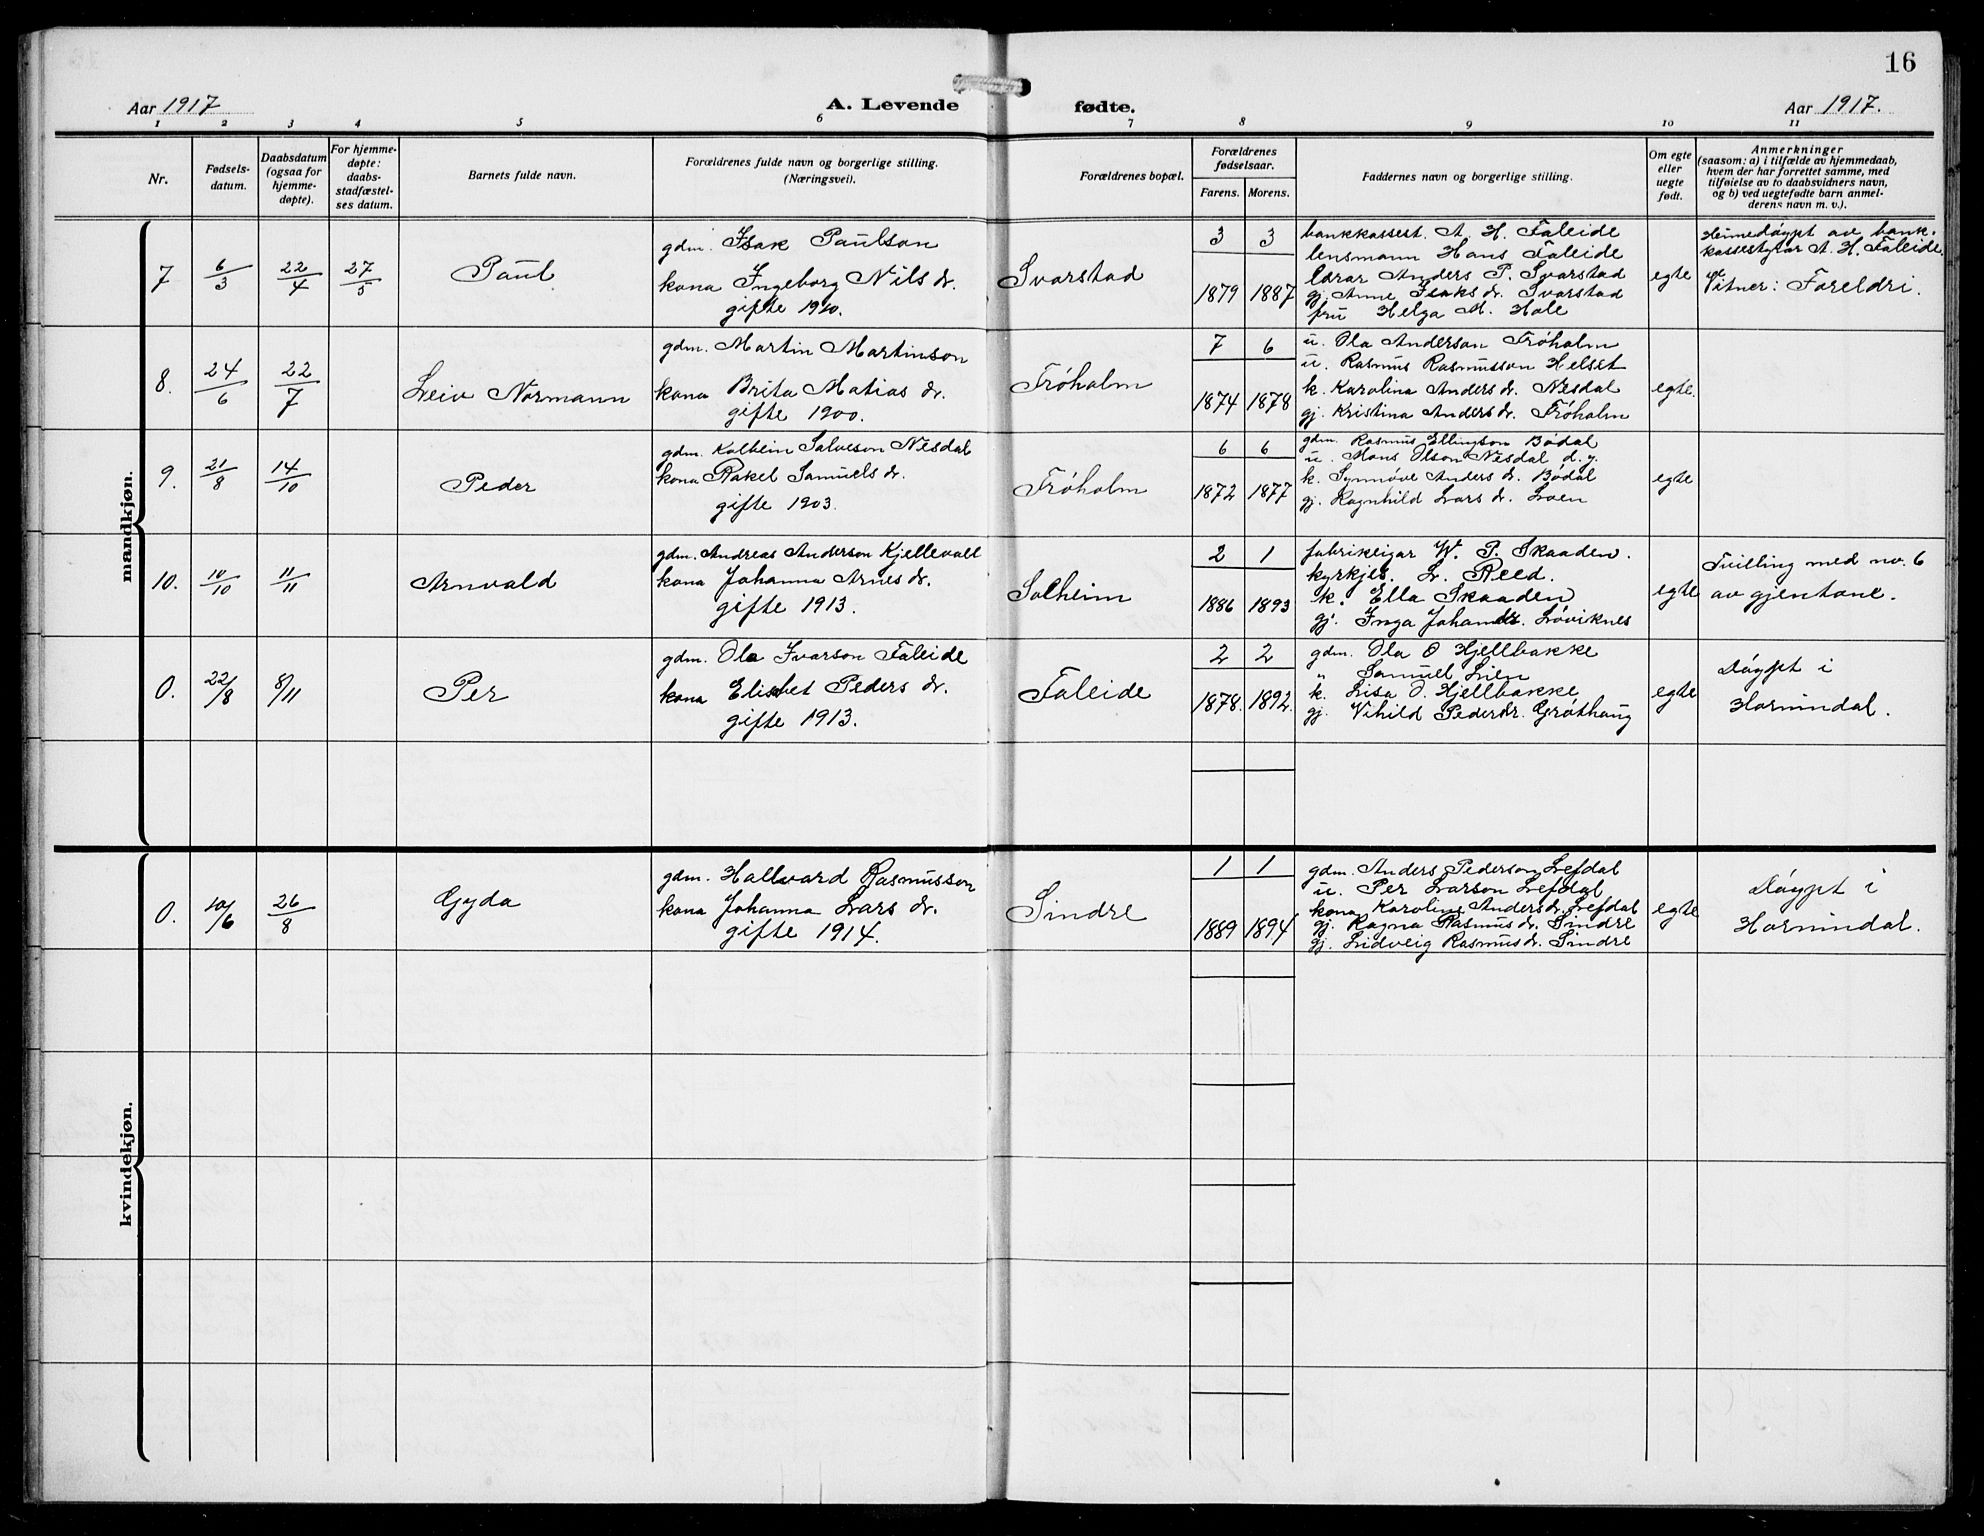 16
Aar 1917
A. Levende fødte.
Aar 1917.
1 2 3 4 5 6 7 8 9 10 11
Nr.
Fødsels-
datum.
Daabsdatum
(ogsaa for
hjemme-
døpte).
For hjemme-
døpte:
daabs-
stadfæstel-
ses datum.
Barnets fulde navn.
Forældrenes fulde navn og borgerlige stilling.
(Næringsvei).
Forældrenes bopæl.
Forældrenes
fødselsaar.
Farens. Morens.
Faddernes navn og borgerlige stilling.
Om egte
eller
uegte
født.
Anmerkninger
(saasom: a) i tilfælde av hjemmedaab,
hvem der har forrettet samme, med
tilføielse av to daabsvidners navn,
og b) ved uegtefødte barn anmel-
derens navn m. v.).
mandkjøn.
7 6/3 22/4 27/5
Paul
gdm. Isak Paulson
kona Ingeborg Nils dr.
gifte 1910.
Svarstad
3 3
1879 1887
bankkassest. A. H. Faleide
lensmann Hans Faleide
lærar Anders P. Svarstad
gj. Anne Isaks dr. Svarstad
fru Helga M. Hole
egte
Heimedøypt av bank-
kassestyrar A. H. Faleide.
Vitner: Foreldri.
8. 24/6 22/7
Leiv Normann
gdm. Martin Martinson
kona Brita Matias dr.
gifte 1900.
Frøholm
7 6
1874 1878
u. Ola Anderson Frøholm
u. Rasmus Rasmusson Helset
k. Karolina Anders dr. Nesdal
gj. Kristina Anders dr. Frøholm
egte.
9. 21/8 14/10
Peder
gdm. Kolbein Salveson Nesdal
kona Rakel Samuels dr.
gifte 1903.
Frøholm
6 6
1872 1877
gdm. Rasmus Ellingson Bødal
u. Mons Olson Nesdal d. y.
k. Synnøve Anders dr. Bødal
gj. Ragnhild Lars dr. Loen
egte
10. 10/10 11/11
Arnvald
gdm. Andreas Anderson Kjellevoll
kona Johanna Arnes dr.
gifte 1913.
Solheim
2 1
1886 1893
fabrikeigar W. P. Skaaden.
kyrkjes. L. Reed.
k. Ella Skaaden
gj. Inga Johans dr. Løviknes
egte
Tvilling med no. 6
av gjentone.
0. 22/8 8/11
Per
gdm. Ola Ivarson Faleide
kona Elisbet Peders dr.
gifte 1913.
Faleide
2 2
1878. 1892.
gdm. Ola O Hjellbakke
" Samuel Lien
k. Lisa O. Hjellbakke
gj. Vihild Peders dr. Grøthaug
egte
Døypt i
Hornindal.
kvindekjøn.
0. 10/6 26/8
Gyda
gdm. Hallvard Rasmusson
kona Johanna Lars dr.
gifte 1914.
Sindre
1 1
1889 1894
gdm. Anders Pederson Lefdal
u. Per Larson Lefdal
kona Karoline Anders dr. Lefdal
gj. Ragna Rasmus dr. Sindre
gj. Lidveig Rasmus dr. Sindre
egte
Døypt i
Hornindal.